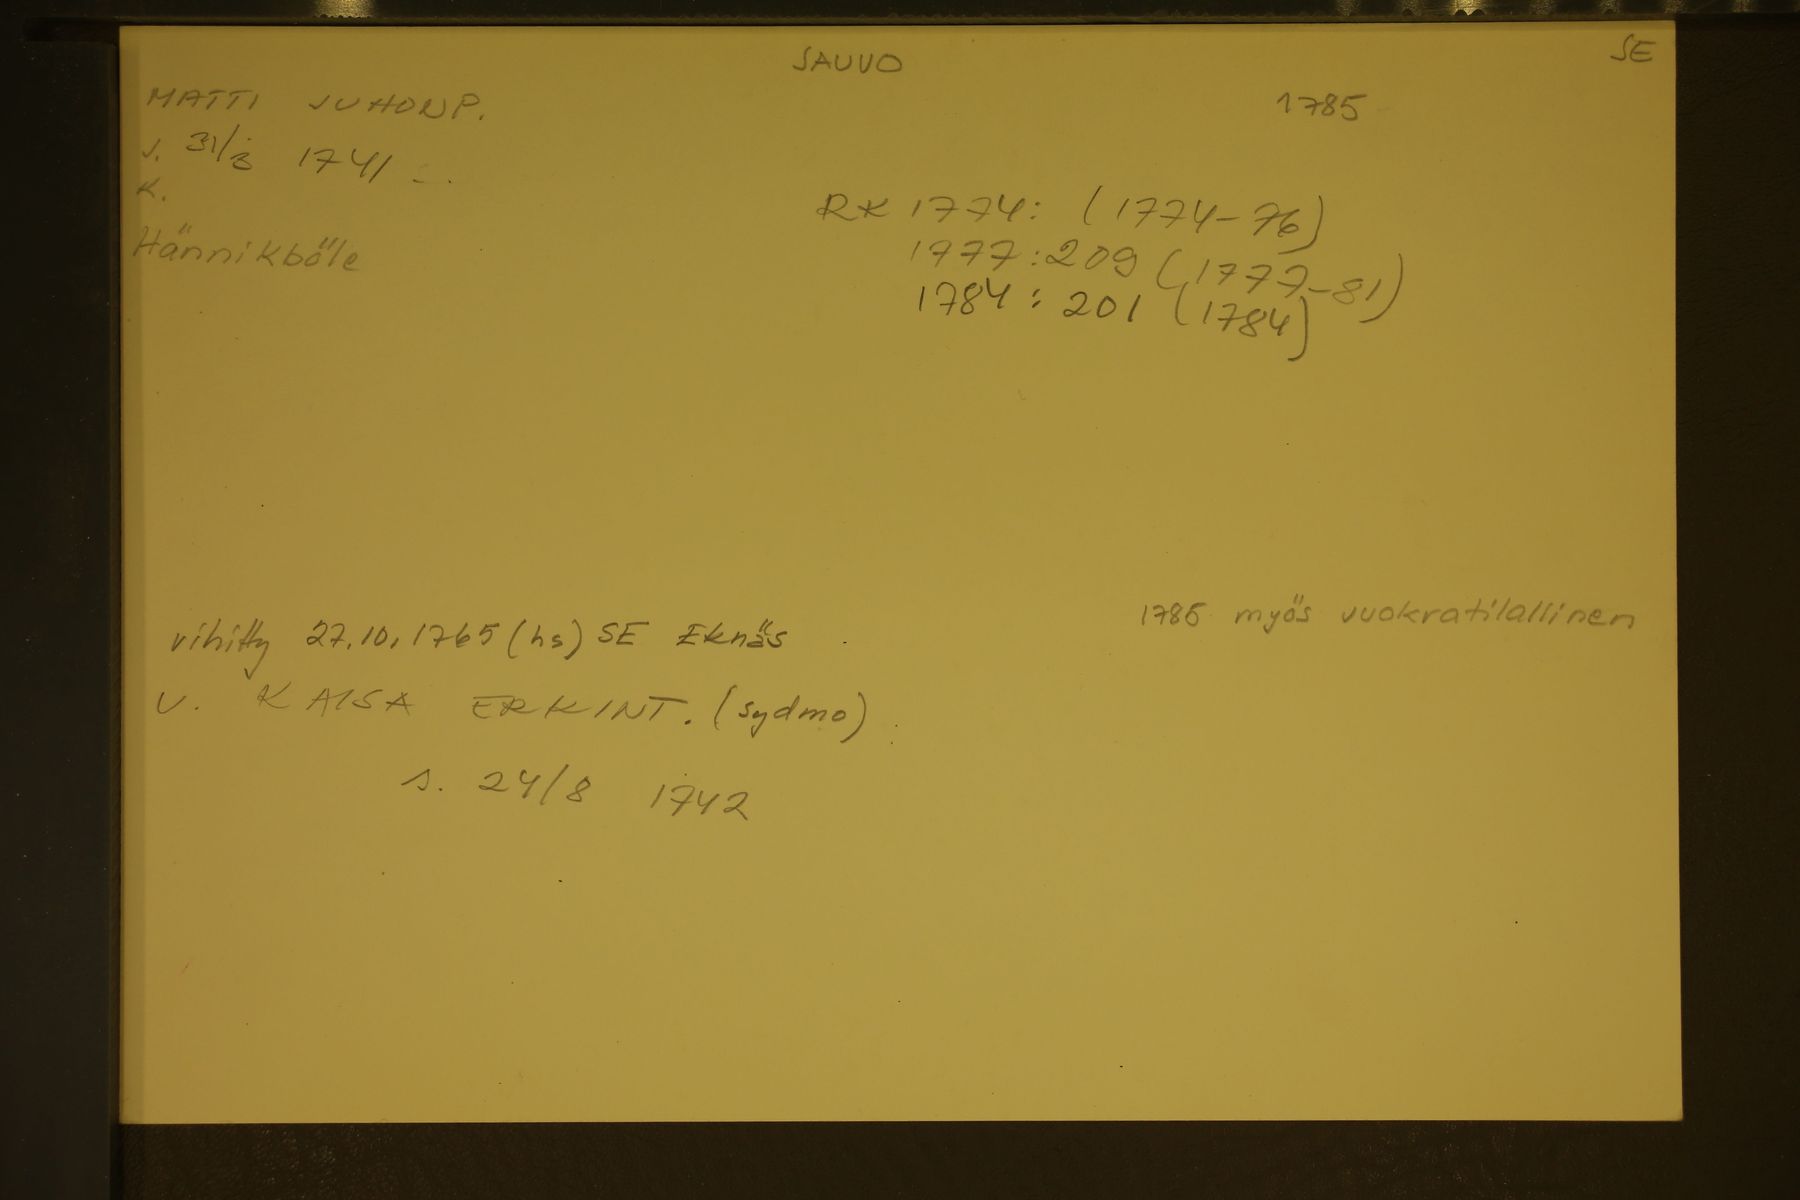 SAUVO
SE
MATTI JUHONP.
1785
s. 31/3 1741
k.
Hännikböle
RK 1774: (1774-76)
1777:209 (1777-81)
1784:201 (1784)
vihitty 27.10.1765 (hs) SE Eknäs
1785 myös vuokratilallinen
V. KAISA ERKINT. (sydmo)
s. 24/8 1742